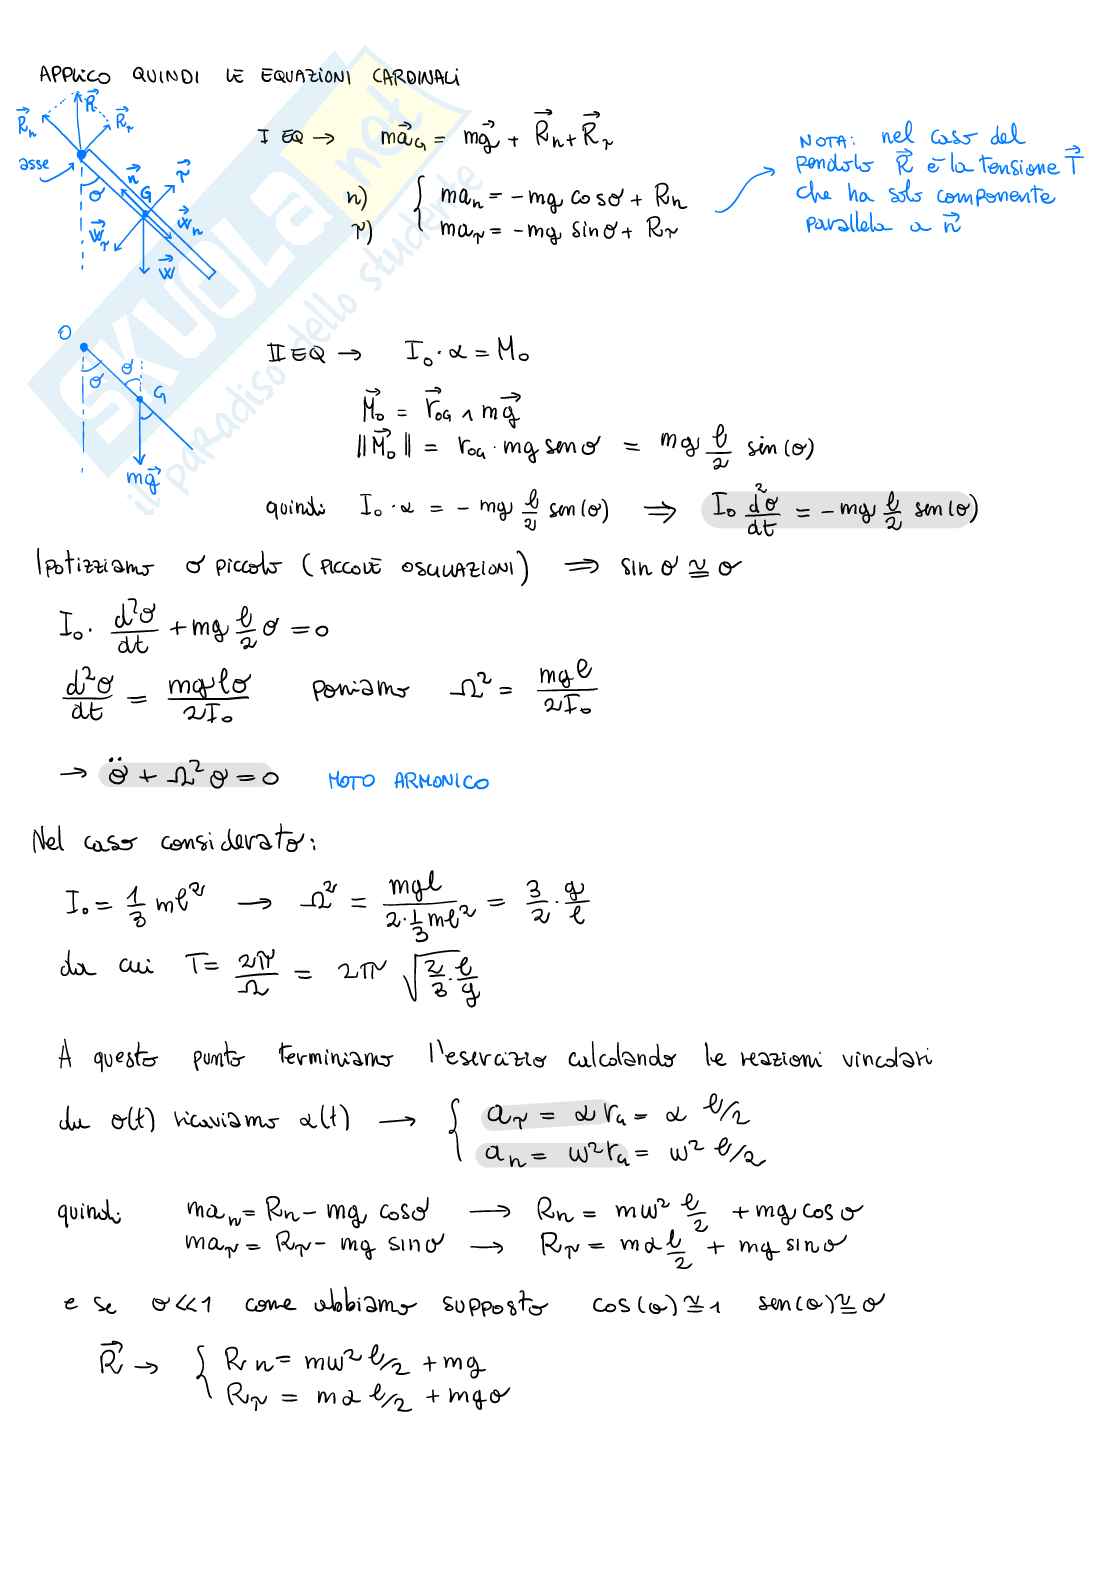 APPLICO QUINDI LE EQUAZIONI CARDINALI
R⃗
R⃗n R⃗τ
asse
n⃗ τ⃗
G
θ
W⃗τ W⃗n
W⃗
I EQ → ma⃗G = mg⃗ + R⃗n + R⃗τ
n) { man = -mg cosθ + Rn
τ) { maτ = -mg sinθ + Rτ
NOTA: nel caso del
pendolo R⃗ è la tensione T⃗
che ha solo componente
parallela a n⃗
O
θ
θ
G
mg⃗
II EQ → Io·α = Mo
M⃗o = r⃗OG ∧ mg⃗
||M⃗o|| = rOG · mg senθ = mg l/2 sin(θ)
quindi Io·α = - mg l/2 sen(θ) ⟹ Io d²θ/dt = - mg l/2 sen(θ)
Ipotizziamo θ piccolo (PICCOLE OSCILLAZIONI) ⟹ sin θ ≃ θ
Io· d²θ/dt + mg l/2 θ = 0
d²θ/dt = mglθ/2Io poniamo Ω² = mgl/2Io
→ θ̈ + Ω²θ = 0 MOTO ARMONICO
Nel caso considerato:
Io = 1/3 ml² → Ω² = mgl/(2·1/3 ml²) = 3/2 · g/l
da cui T = 2π/Ω = 2π √(2/3 · l/g)
A questo punto terminiamo l'esercizio calcolando le reazioni vincolari
da θ(t) ricaviamo α(t) → { aτ = α rG = α l/2
{ an = w² rG = w² l/2
quindi man = Rn - mg cosθ → Rn = mw² l/2 + mg cosθ
maτ = Rτ - mg sinθ → Rτ = mα l/2 + mg sinθ
e se θ≪1 come abbiamo supposto cos(θ)≃1 sen(θ)≃θ
R⃗ → { Rn = mw² l/2 + mg
{ Rτ = mα l/2 + mgθ
SKUOLA.net
il paradiso dello studente